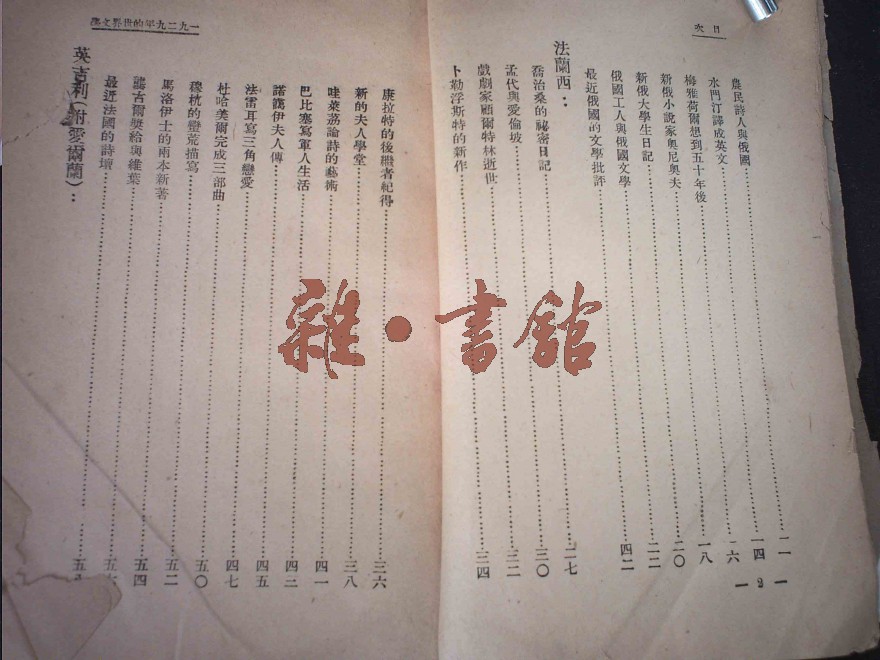 目次
農民詩人與俄國……一一
水門汀譯成英文……一四
梅雅荷爾想到五十年後……一六
新俄小說家奧尼奧夫……一八
新俄大學生日記……二〇
俄國工人與俄國文學……二二
最近俄國的文學批評……四二
法蘭西：……二七
喬治桑的祕密日記……三〇
孟代與愛倫坡……三二
戲劇家顧爾特林逝世
卜勒浮斯特的新作……三四
— 2 —
一九二九年的世界文學
康拉特的後繼者紀得……三六
新的夫人學堂……三八
哇萊荔論詩的藝術……四一
巴比塞寫軍人生活……四三
諾護伊夫人傳……四五
法雷耳寫三角戀愛
杜哈美爾完成三部曲……四七
穆杭的蠻荒描寫……五〇
馬洛伊士的兩本新著……五二
龔古爾獎給與維葉……五四
最近法國的詩壇
英吉利（附愛爾蘭）：
雜·書館